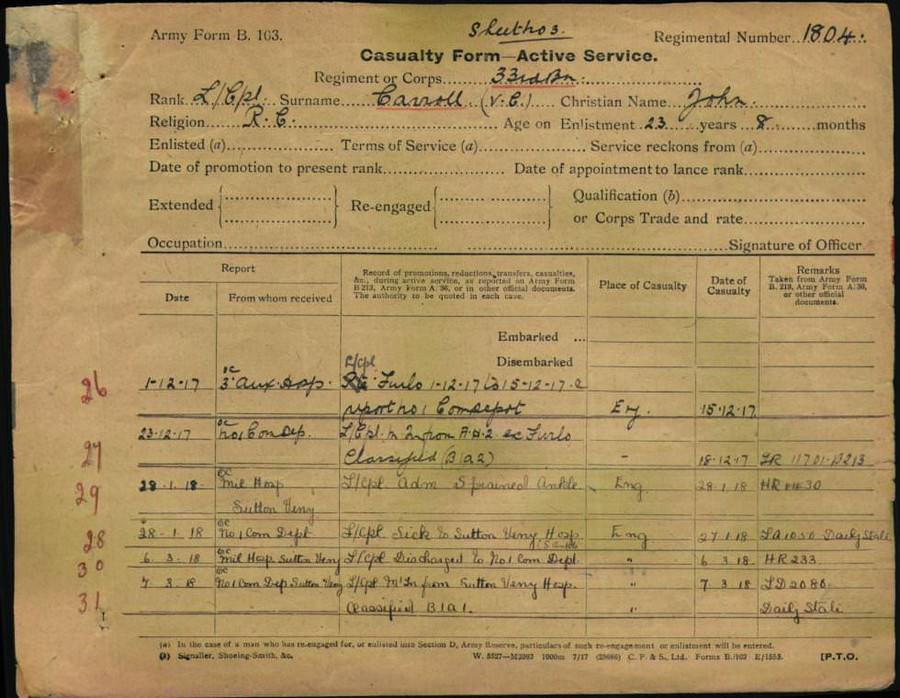 Army Form B. 103.
Sheet No 3.
Regimental Number..1804.
Casualty Form—Active Service.
Regiment or Corps......33rd Bn.
Rank L/Cpl. Surname Carroll (V.C.) Christian Name John.
Religion R.C. Age on Enlistment 23 years 8 months
Enlisted (a) Terms of Service (a) Service reckons from (a)
Date of promotion to present rank Date of appointment to lance rank
Extended Re-engaged Qualification (b)
or Corps Trade and rate
Occupation Signature of Officer
Report
Date From whom received
Record of promotions, reductions, transfers, casualties, &c., during active service, as reported on Army Form B 213, Army Form A. 36, or in other official documents. The authority to be quoted in each case.
Place of Casualty
Date of Casualty
Remarks
Taken from Army Form B. 213, Army Form A. 36, or other official documents.
Embarked ...
Disembarked
L/Cpl
26 1-12-17 OC 3 Aux. Hosp. Furlo 1-12-17 to 15-12-17 &
report no 1 Com Depot Eng. 15.12.17
23-12-17 OC No 1 Com Dep. L/Cpl. M In from A.H.2. ex Furlo
27 Classified (B1a2) - 18-12-17
29 28.1.18. OC Mil Hosp L/Cpl Adm Sprained Ankle Eng. 28.1.18 HR
Sutton Veny
28 28.1.18 OC No 1 Com Dept L/Cpl Sick to Sutton Veny Hosp Eng 27.1.18 Daily State
30 6.3.18 OC Mil Hosp. Sutton Veny L/Cpl Discharged to No 1 Com Dept. " 6 3 18 HR 233
7.3.18 OC No 1 Com Dep Sutton Veny L/Cpl M' In from Sutton Veny Hosp. " 7 3 18 LD 2080
31 Classified B1a1. " Daily State
(a) In the case of a man who has re-engaged for, or enlisted into Section D, Army Reserve, particulars of such re-engagement or enlistment will be entered.
(b) Signaller, Shoeing-Smith, &c. 1000m 7/17 C. P. & S., Ltd. Forms B./103 [P.T.O.